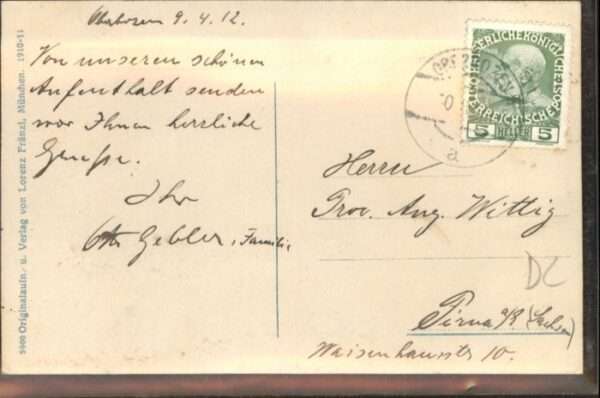 Oberbozen 9.4.12.
Von unseren schönen
Aufenthalt senden
wir Ihnen herzliche
Grüsse.
Ihr
Gebler, u. Familie
KAISERLICHE KÖNIGLICHE
ÖSTERREICHISCHE POST
5 HELLER 5
OBERBOZEN
a
Herrn
Proc. Aug. Wittig
DC
Pirna a/E (Sachsen)
Waisenhausstr 10.
5900 Originalaufn. u. Verlag von Lorenz Fränzl, München. 1910-11